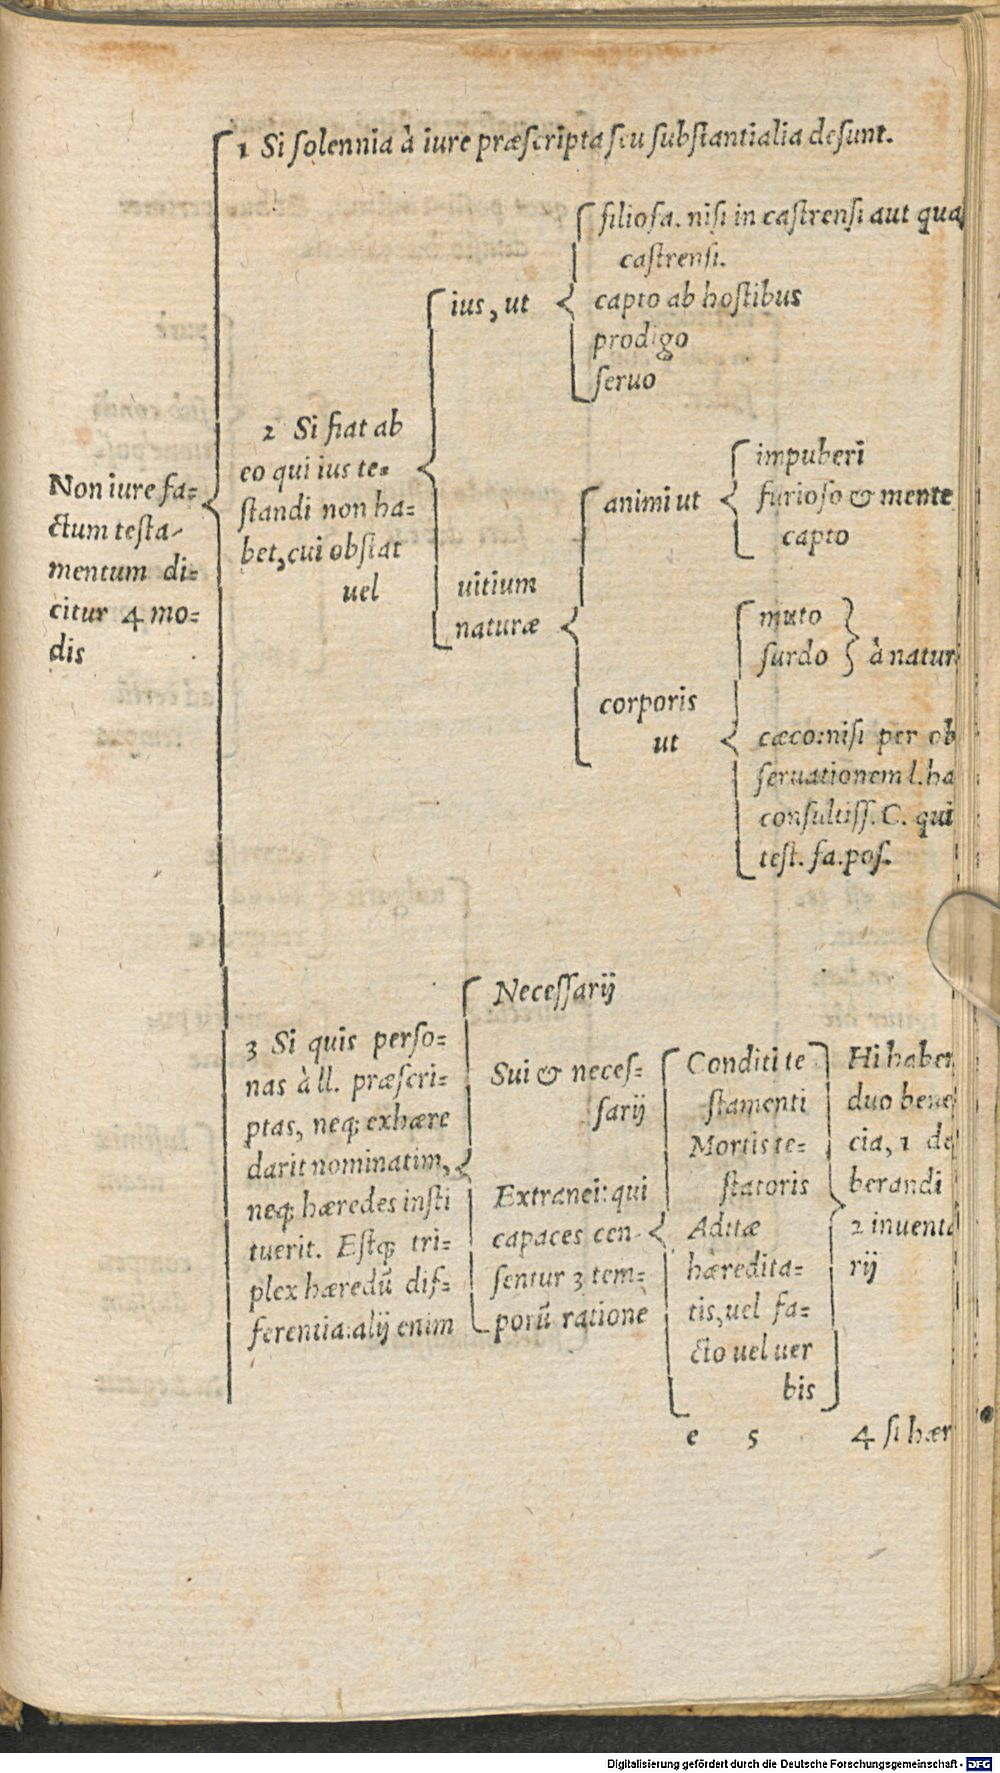 Non iure fa⸗
ctum testa-
mentum di⸗
citur 4 mo⸗
dis
1 Si solennia à iure præscripta seu substantialia desunt.
2 Si fiat ab
eo qui ius te⸗
standi non ha⸗
bet, cui obstat
uel
ius, ut
filiofa. nisi in castrensi aut qua
castrensi.
capto ab hostibus
prodigo
seruo
uitium
naturæ
animi ut
impuberi
furioso & mente
capto
corporis
ut
muto
surdo
à natur
cæco: nisi per ob
seruationem l. ha
consultiss. C. qui
test. fa. pos.
3 Si quis perso⸗
nas à ll. præscri⸗
ptas, neq; exhære
darit nominatim,
neq; hæredes insti
tuerit. Estq; tri⸗
plex hæredū dif⸗
ferentia: alij enim
Necessarij
Sui & neces⸗
sarij
Extranei: qui
capaces cen-
sentur 3 tem⸗
porū ratione
Conditi te
stamenti
Mortis te⸗
statoris
Aditæ
hæredita⸗
tis, uel fa⸗
cto uel uer
bis
Hi haben
duo bene
cia, 1 de
berandi
2 inuenta
rij
e 5 4 si hær
Digitalisierung gefördert durch die Deutsche Forschungsgemeinschaft - DFG